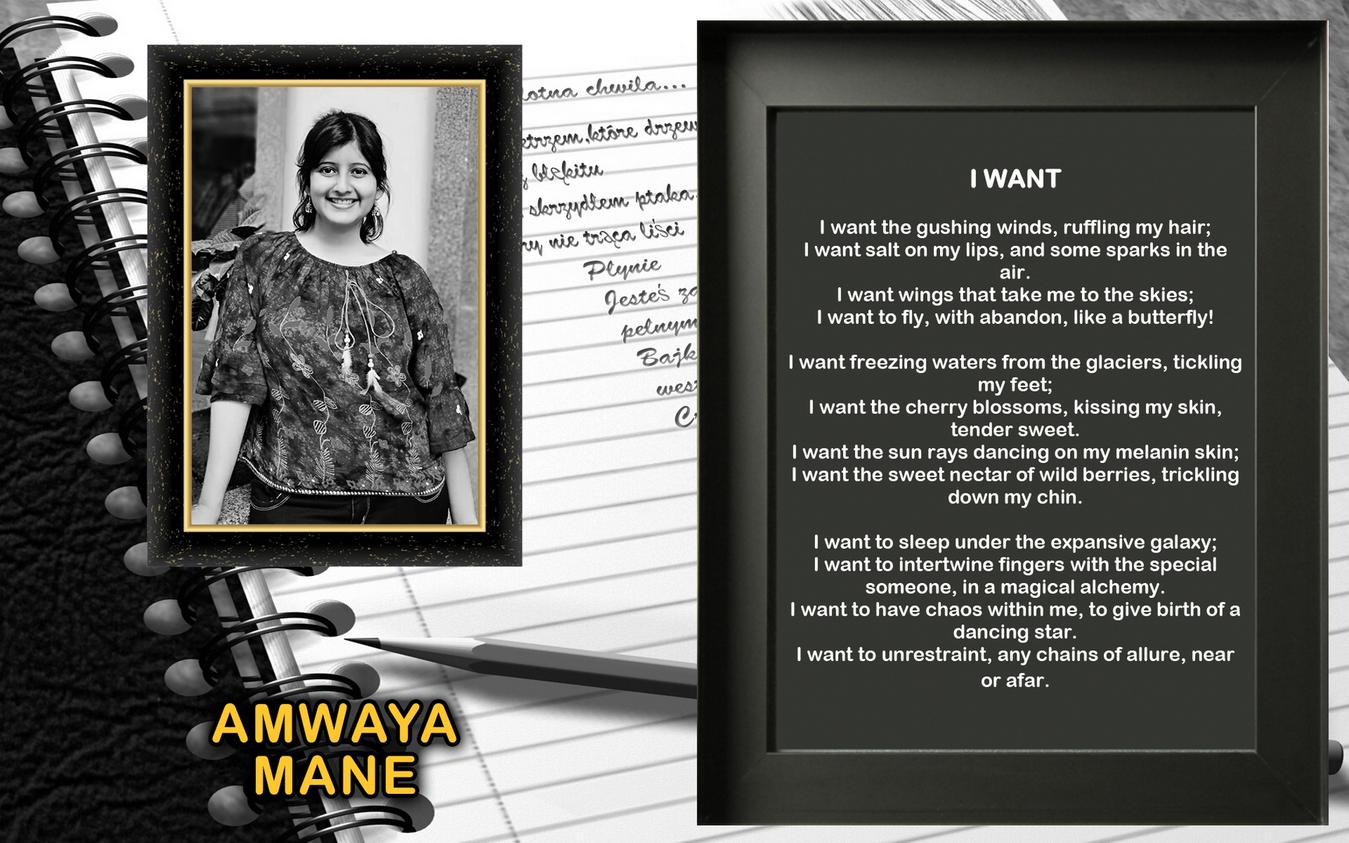 otna chwila...
etrzem,które drzew
błękitu
skrzydłem ptaka
ry nie trąca liści
Płynie
Jesteś
pełnym
Bajk
I WANT
I want the gushing winds, ruffling my hair;
I want salt on my lips, and some sparks in the
air.
I want wings that take me to the skies;
I want to fly, with abandon, like a butterfly!
I want freezing waters from the glaciers, tickling
my feet;
I want the cherry blossoms, kissing my skin,
tender sweet.
I want the sun rays dancing on my melanin skin;
I want the sweet nectar of wild berries, trickling
down my chin.
I want to sleep under the expansive galaxy;
I want to intertwine fingers with the special
someone, in a magical alchemy.
I want to have chaos within me, to give birth of a
dancing star.
I want to unrestraint, any chains of allure, near
or afar.
AMWAYA
MANE